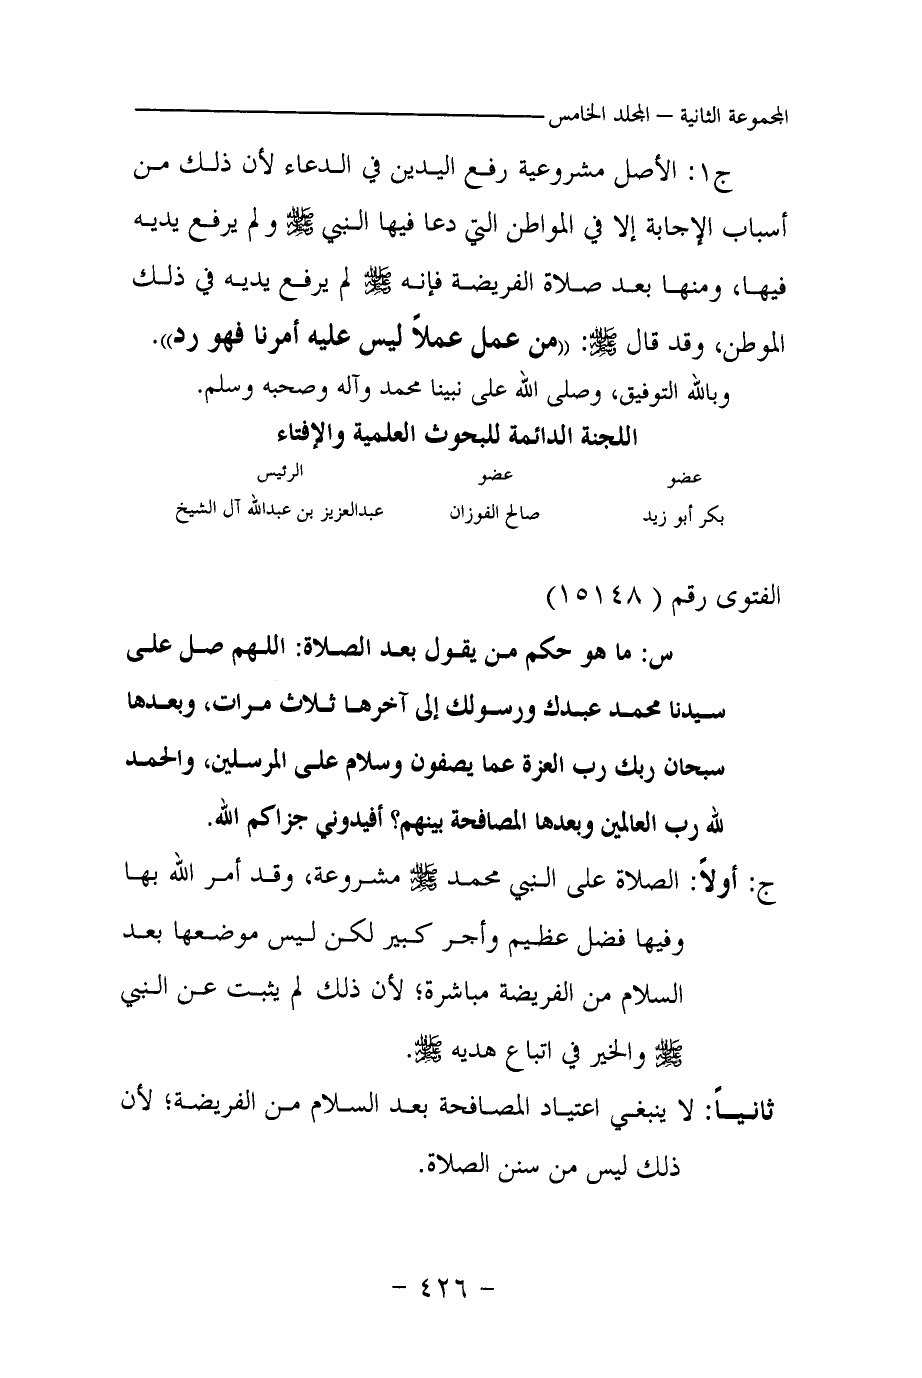 المجموعة الثانية – المجلد الخامس
ج١: الأصل مشروعية رفع اليدين في الدعاء لأن ذلك من
أسباب الإجابة إلا في المواطن التي دعا فيها النبي ﷺ ولم يرفع يديه
فيها، ومنها بعد صلاة الفريضة فإنه ﷺ لم يرفع يديه في ذلك
الموطن، وقد قال ﷺ: ((من عمل عملاً ليس عليه أمرنا فهو رد)).
وبالله التوفيق، وصلى الله على نبينا محمد وآله وصحبه وسلم.
اللجنة الدائمة للبحوث العلمية والإفتاء
عضو عضو الرئيس
بكر أبو زيد صالح الفوزان عبدالعزيز بن عبدالله آل الشيخ
الفتوى رقم ( ١٥١٤٨)
س: ما هو حكم من يقول بعد الصلاة: اللهم صل على
سيدنا محمد عبدك ورسولك إلى آخرها ثلاث مرات، وبعدها
سبحان ربك رب العزة عما يصفون وسلام على المرسلين، والحمد
لله رب العالمين وبعدها المصافحة بينهم؟ أفيدوني جزاكم الله.
ج: أولاً: الصلاة على النبي محمد ﷺ مشروعة، وقد أمر الله بها
وفيها فضل عظيم وأجر كبير لكن ليس موضعها بعد
السلام من الفريضة مباشرة؛ لأن ذلك لم يثبت عن النبي
ﷺ والخير في اتباع هديه ﷺ.
ثانياً: لا ينبغي اعتياد المصافحة بعد السلام من الفريضة؛ لأن
ذلك ليس من سنن الصلاة.
– ٤٢٦ –